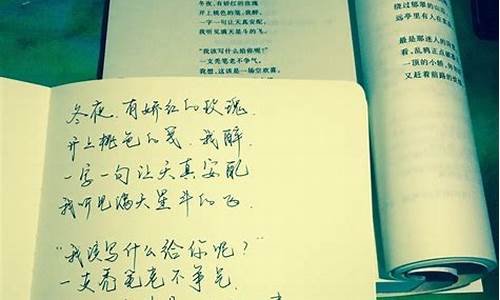 冬夜，有娇红的玫瑰
开上桃色的笺，我醉，
一字一句让天真安配，
我听见满天星斗的飞。
"我该写什么给你呢？"
一支秃笔老不争气，
我想，这该是一场空欢喜，
绕过郁翠的山
里有人在
最是那迷人的
看，乱鸦正点
一顶的小轿，
又赶着前路的
冬夜，有娇红的玫瑰，
开上桃色的笺，我醉，
一字一句让天真安配
我听见满天星斗的飞，
"我该写什么给你呢？"
一支秃笔老不争气，